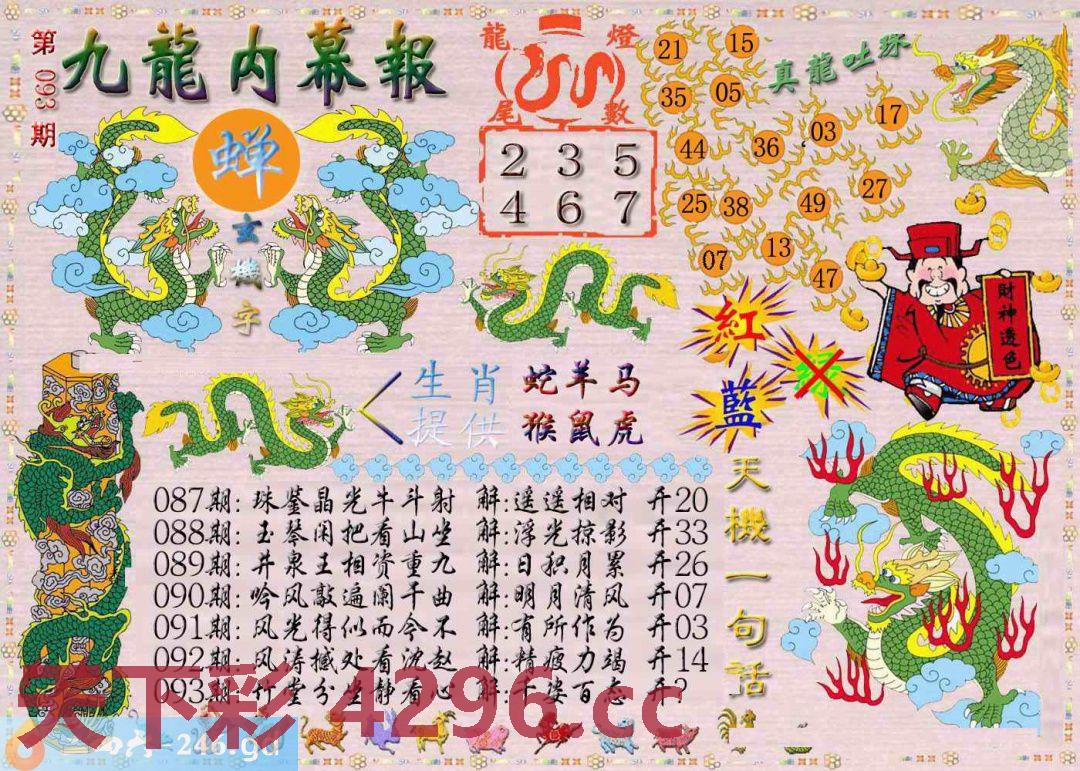 第093期
九龍内幕報
蝉
玄機字
龍燈
尾數
2 3 5
4 6 7
真龍吐珠
21 15
35 05
44 36 03 17
25 38 49 27
07 13 47
紅
藍
財神透色
生肖提供
蛇羊马
猴鼠虎
天機一句話
087期:珠鉴晶光牛斗射 解:遥遥相对 开20
088期:玉琴闲把看山坐 解:浮光掠影 开33
089期:井泉王相资重九 解:日积月累 开26
090期:吟风敲遍阑干曲 解:明月清风 开07
091期:风光得似而今不 解:有所作为 开03
092期:风涛撼处看沈赵 解:精疲力竭 开14
093期:竹堂分坐静看心 解:千姿百态 开?
天下彩 4296.cc
246.gd